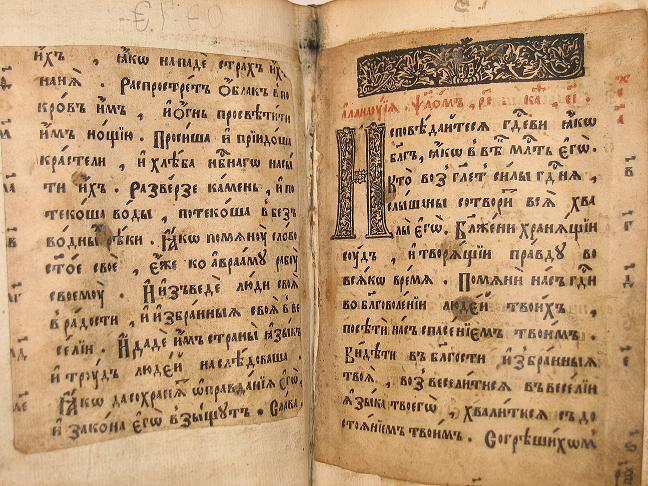 и҆́хъ , ꙗ҆́кѡ нападе страхъ и҆́хъ
на нѧ̀ . Распрострѐтъ ѻ҆́блакъ в по
кро́въ и҆̀мъ , и҆ ѻ҆́гнь просвѣти́ти
и҆̀мъ но́щїю . Проси́ша и҆ прїидо́ша
кра́стели , и҆ хлѣ́ба нб҃наго насы
ти и҆́хъ . Разве́рзе ка́мень , и҆ по
теко́ша во́ды , потеко́ша в безъ
во́дныѧ рѣ́ки . Ꙗ҆́кѡ помѧнꙋ̀ сло́во
ст҃о́е своѐ , є҆́же ко а҆враа́мꙋ рабꙋ̀
своемꙋ̀ . И҆ и҆зъведѐ лю́ди своѧ̀
в ра́дости , и҆ и҆збра́нныѧ своѧ̀ в ве
се́лїи . И҆ дадѐ и҆̀мъ страны̀ ꙗ҆зы́къ
и҆ трꙋ́дъ люде́й наслѣ́доваша .
Ꙗ҆́кѡ да сохранѧ́тъ ѡ҆правда́нїѧ є҆гѡ̀
и҆ зако́на є҆гѡ̀ взы́щꙋтъ . Сла́ва
хс҃
а҆
в
г
д
є
ѕ
а҆ллилꙋ́їѧ . ѱло́мъ , р҃е
И҆сповѣ́дайтесѧ гд҃еви ꙗ҆́кѡ
бл҃гъ , ꙗ҆́кѡ в вѣ́къ млⷭ҇ть є҆гѡ̀ .
Кто̀ возгл҃етъ си́лы гд҃нѧ ,
слы́шаны сотвори́тъ всѧ̀ хва
лы̀ є҆гѡ̀ . Бл҃же́ни хранѧ́щїи
сꙋ́дъ , и҆ творѧ́щїи пра́вдꙋ во
всѧ́ко вре́мѧ . Помѧнѝ на́съ гд҃и
во благоволе́нїи люде́й твои́хъ ,
посѣтѝ на́съ спасе́нїемъ твои́мъ .
Ви́дѣти в бл҃гости и҆збра́нныѧ
твоѧ̀ , возвесели́тисѧ в весе́лїи
ꙗ҆зы́ка твоегѡ̀ , хвали́тисѧ съ до
стоѧ́нїемъ твои́мъ . Согрѣши́хомъ